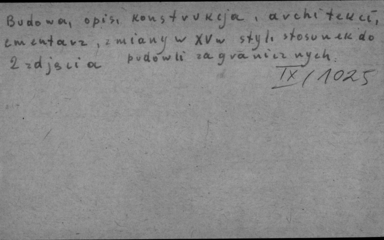 Budowa, opisi konstrukcja, architekci,
cmentarz, zmiany w XV w styl, stosunek do
2 zdjęcia budowli zagranicznych.
IX/1025